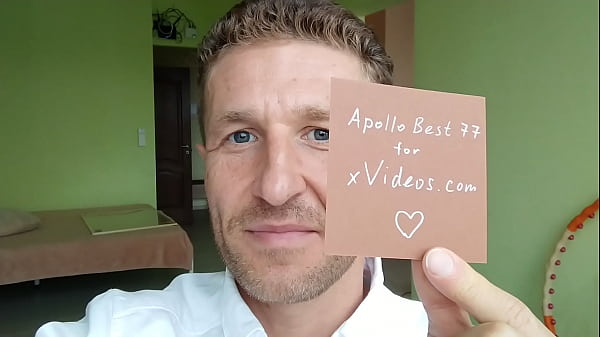 Apollo Best 77
for
xVideos.com